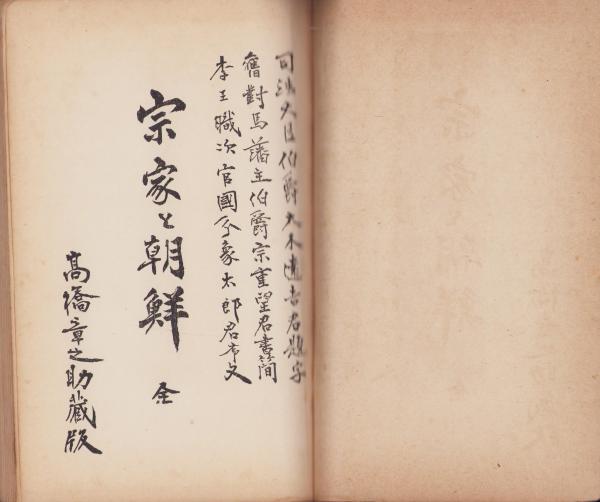 司法大臣伯爵大木遠吉君題字
舊對馬藩主伯爵宗重望君書簡
李王職次官國分象太郎君序文
宗家と朝鮮 全
高橋章之助藏版